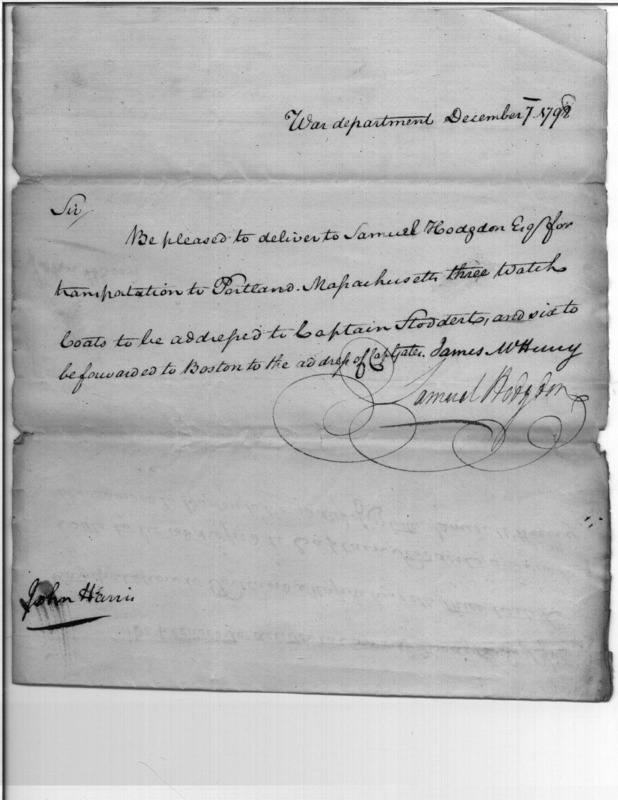 War department December 7 1798
Sir
Be pleased to deliver to Samuel Hodgdon Esqr for
transportation to Portland. Massachusetts three watch
Coats to be addressed to Captain Stoddert, and six to
be forwarded to Boston to the address of Cap Gates. James McHenry
Samuel Hodgdon
John Harris